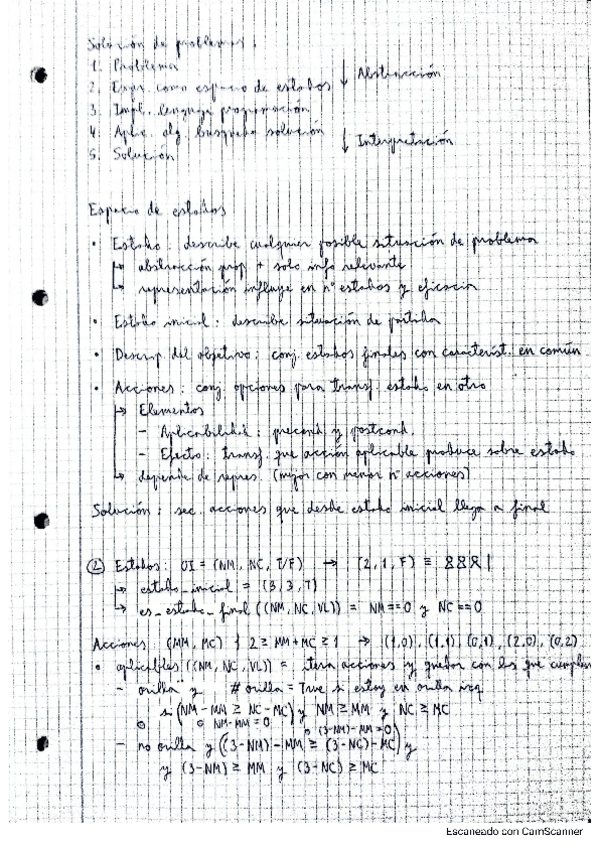 Solución de problemas:
1. Problema
2. Expr. como espacio de estados ↓ Abstracción
3. Impl. lenguaje programación
4. Aplic. alg. búsqueda solución ↓ Interpretación
5. Solución
Espacio de estados
• Estado: describe cualquier posible situación de problema
↳ abstracción prop + solo info relevante
↳ representación influye en nº estados y eficacia
• Estado inicial: describe situación de partida
• Descrip. del objetivo: conj. estados finales con caracterist. en común
• Acciones: conj. opciones para transf. estado en otro
↳ Elementos
- Aplicabilidad: precond. y postcond.
- Efecto: transf. que acción aplicable produce sobre estado
↳ depende de repres. (mejor con menor nº acciones)
Solución: sec. acciones que desde estado inicial llega a final
② Estados: OI = (NM, NC, T/F) → (2,1,F) ≡
↳ estado_inicial = (3,3,T)
↳ es_estado_final((NM,NC,VL)) = NM==0 y NC==0
Acciones (MM, MC) { 2 ≥ MM+MC ≥ 1 → (1,0), (1,1), (0,1), (2,0), (0,2)
• aplicables((NM,NC,VL)) = itera acciones y quedar con las que cumplen
- orilla y # orilla = True si estoy en orilla izq
si (NM-MM ≥ NC-MC) y NM ≥ MM y NC ≥ MC
o NM-MM=0 o (3-NM)-MM=0
- no orilla y ((3-NM)-MM ≥ (3-NC)-MC) y
y (3-NM) ≥ MM y (3-NC) ≥ MC
Escaneado con CamScanner